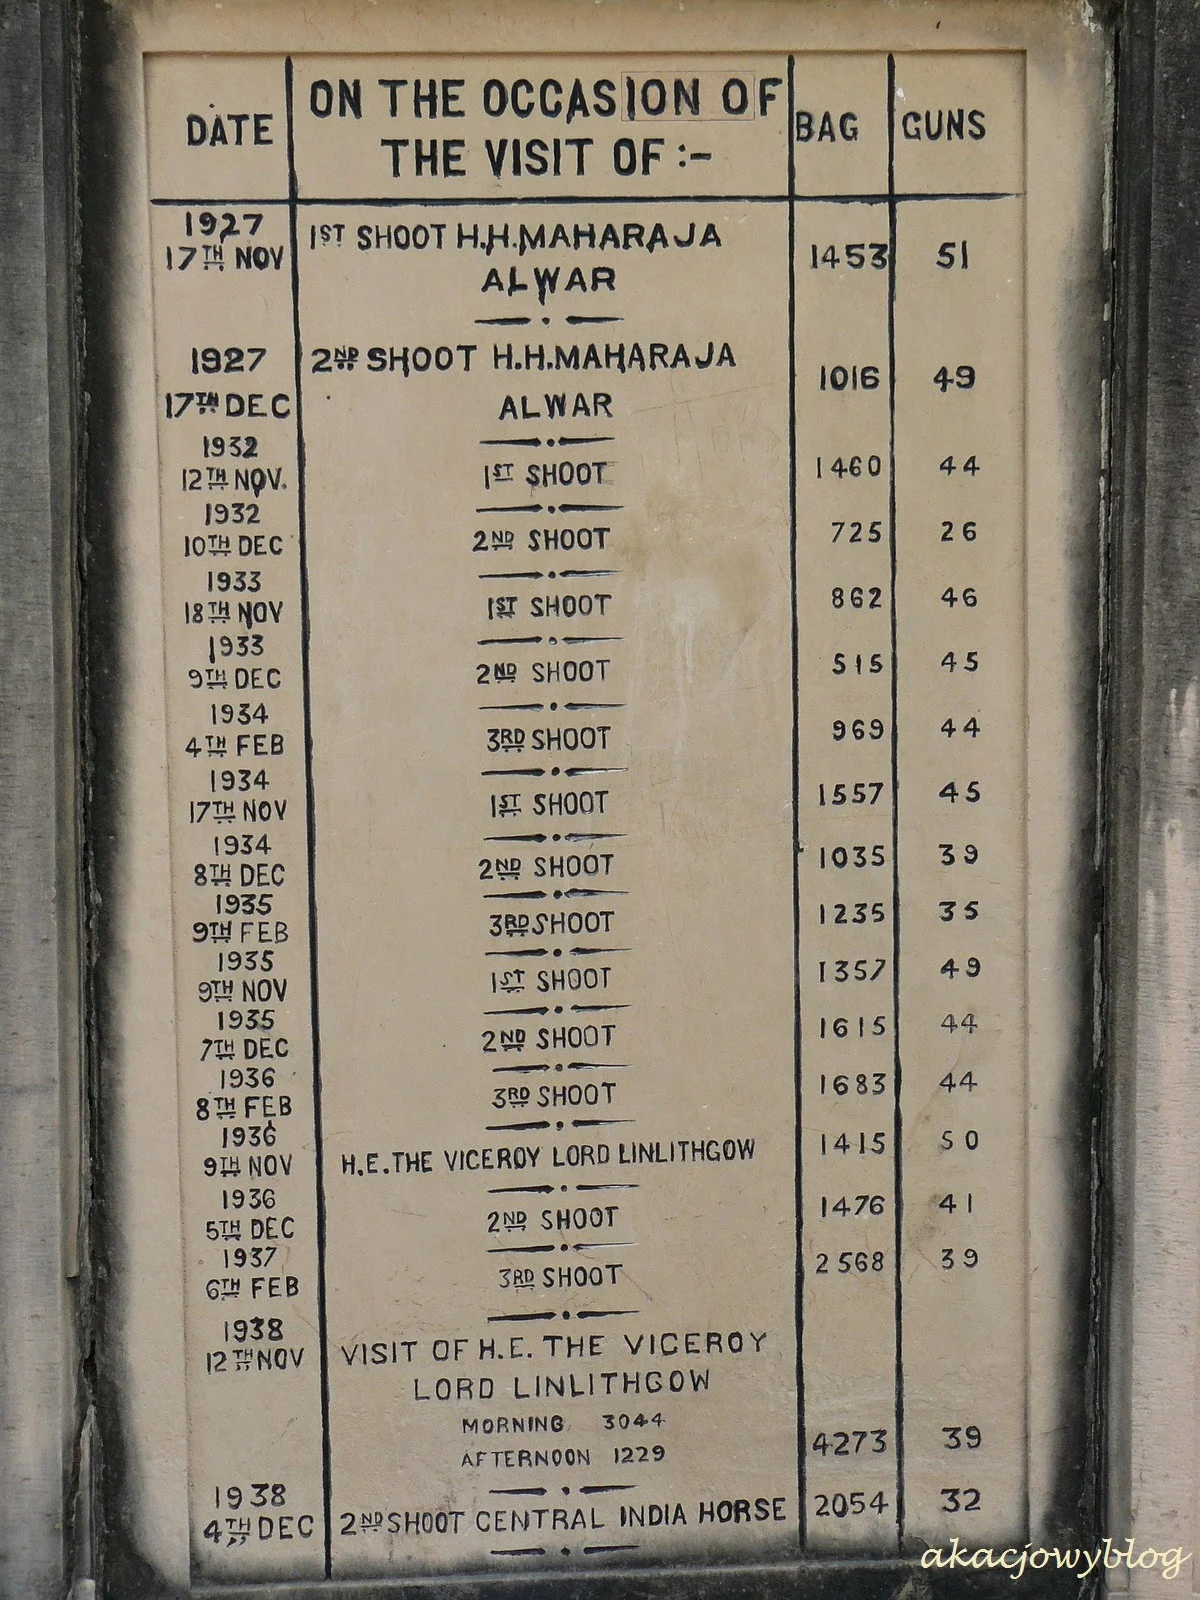 DATE ON THE OCCASION OF THE VISIT OF :- BAG GUNS
1927
17TH NOV 1ST SHOOT H.H.MAHARAJA ALWAR 1453 51
1927
17TH DEC 2ND SHOOT H.H.MAHARAJA ALWAR 1016 49
1932
12TH NOV. 1ST SHOOT 1460 44
1932
10TH DEC 2ND SHOOT 725 26
1933
18TH NOV 1ST SHOOT 862 46
1933
9TH DEC 2ND SHOOT 515 45
1934
4TH FEB 3RD SHOOT 969 44
1934
17TH NOV 1ST SHOOT 1557 45
1934
8TH DEC 2ND SHOOT 1035 39
1935
9TH FEB 3RD SHOOT 1235 35
1935
9TH NOV 1ST SHOOT 1357 49
1935
7TH DEC 2ND SHOOT 1615 44
1936
8TH FEB 3RD SHOOT 1683 44
1936
9TH NOV H.E. THE VICEROY LORD LINLITHGOW 1415 50
1936
5TH DEC 2ND SHOOT 1476 41
1937
6TH FEB 3RD SHOOT 2568 39
1938
12TH NOV VISIT OF H.E. THE VICEROY
LORD LINLITHGOW
MORNING 3044
AFTERNOON 1229 4273 39
1938
4TH DEC 2ND SHOOT CENTRAL INDIA HORSE 2054 32
akacjowyblog